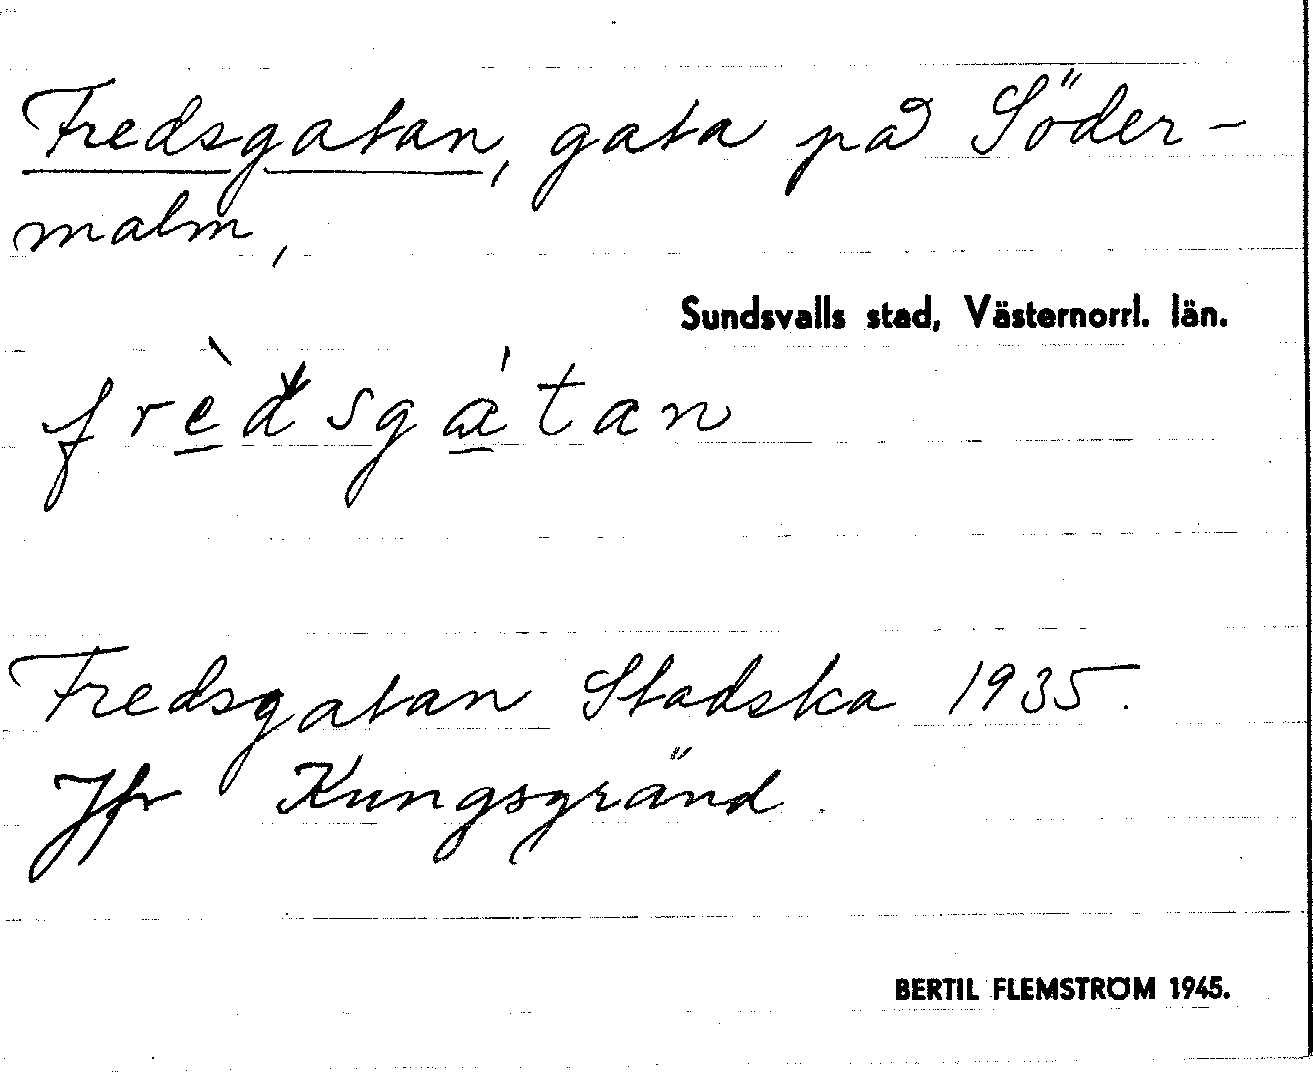 Fredsgatan, gata på Söder-
malm,
Sundsvalls stad, Västernorrl. län.
frèdsgátan
Fredsgatan Stadska 1935.
Jfr Kungsgränd.
BERTIL FLEMSTRÖM 1945.